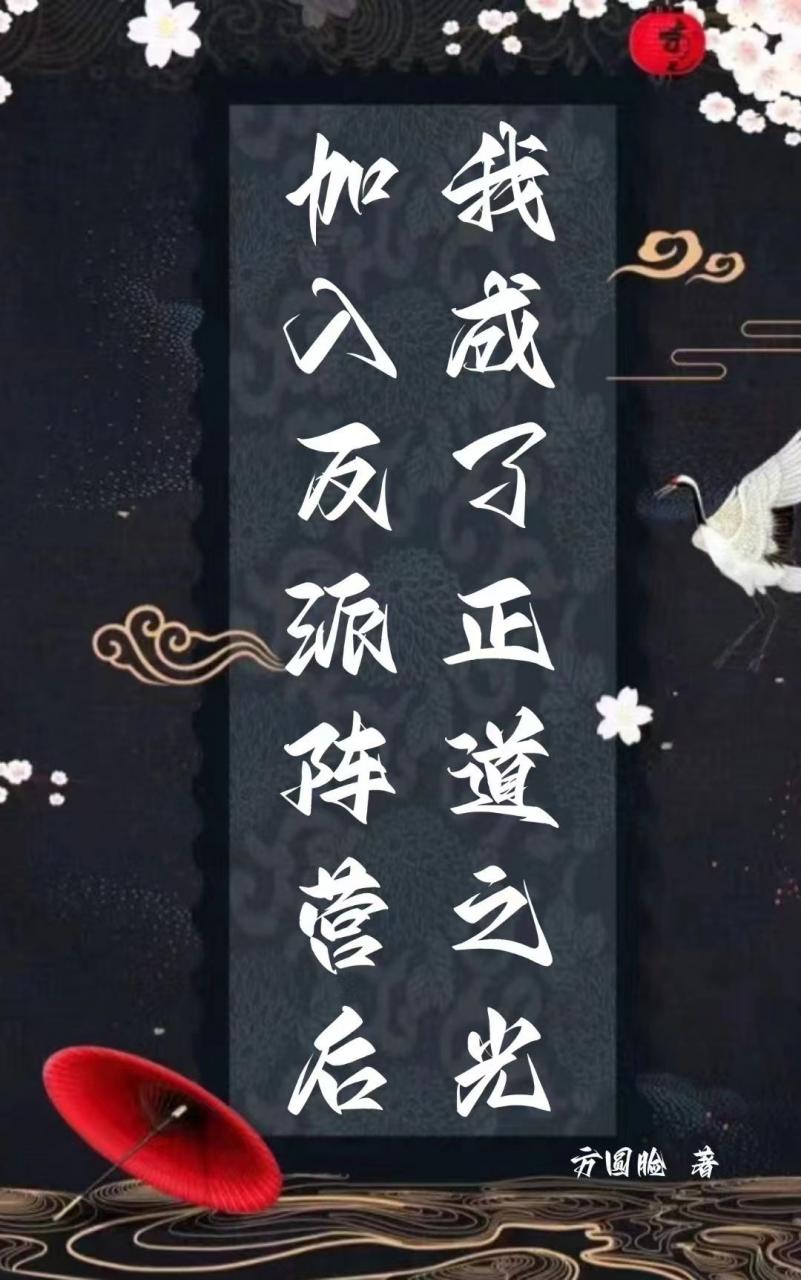 加入反派阵营后
我成了正道之光
方圆脸 著